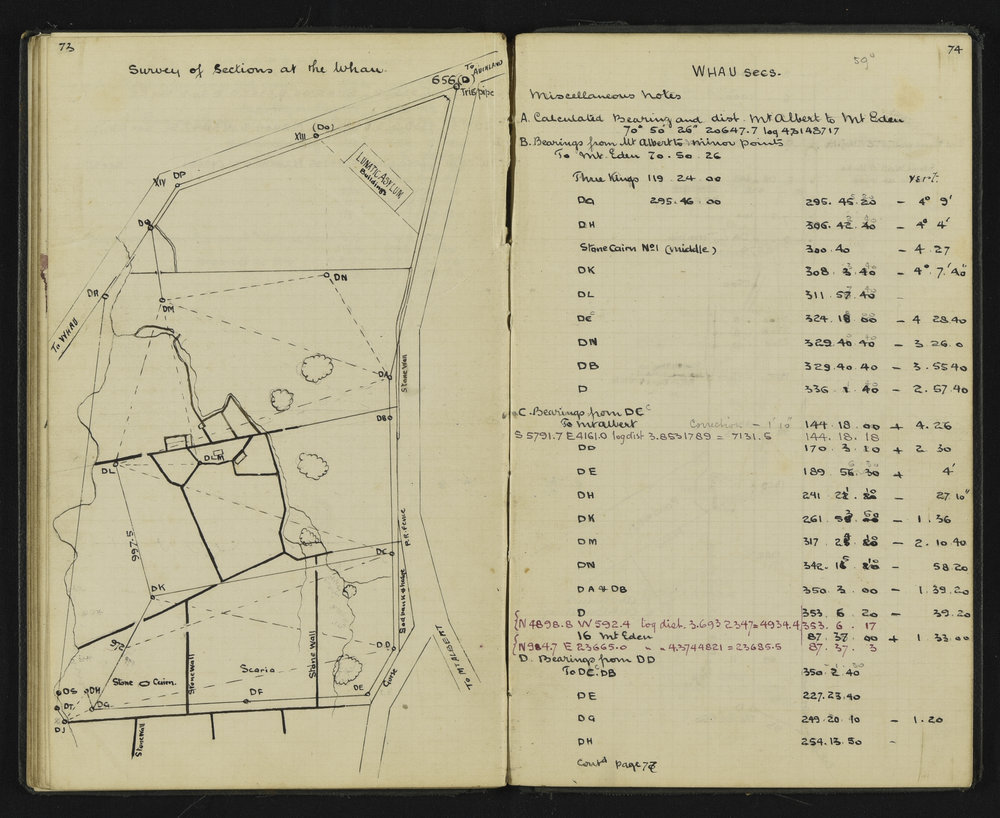 73
Survey of Sections at the Whau.
To Auckland
656 (D)
Trig pipe
XIII (Do)
LUNATIC ASYLUM
Buildings
XIV DP
DQ
DN
DR
DM
To WHAU
DA
Stone Wall
DB
DL
DLM
997.5
P.R. Fence
DC
DK
DD
To Mt ALBERT
Gorse
Stone Wall
Stone Wall
Scoria
Stone Cairn.
DS DH
DE
DF
DT
DG
DJ
Stonewall
74
59°
WHAU secs.
Miscellaneous Notes
A. Calculated Bearing and dist. Mt Albert to Mt Eden
70° 50' 26" 20647.7 log 4.3148717
B. Bearings from Mt Albert to minor points
To Mt. Eden 70. 50. 26
Three Kings 119. 24. 00 Vert.
DG 295. 46. 00 295. 45. 20 - 4° 9'
DH 306. 42. 40 - 4° 4'
Stone Cairn No1 (middle) 300. 40 - 4. 27
DK 308. 3. 40 - 4° 7' 40"
DL 311. 57. 40
DC 324. 18. 00 - 4 28.40
DN 329. 40. 40 - 3. 26. 0
DB 329. 40. 40 - 3. 55 40
D 336. 1. 40 - 2. 57. 40
C. Bearings from DC
To Mt Albert Correction - 1' 10" 144. 18. 00 + 4. 26
S 5791.7 E 4161.0 log dist 3.8531789 = 7131.5 144. 18. 18
DD 170. 3. 10 + 2 30
DE 189. 56. 30 + 4'
DH 241. 27 10"
DK 261. - 1. 36
DM 317. - 2. 10. 40
DN 342. 58 20
DA & DB 350. 3. 00 - 1. 39. 20
D 353. 6. 20 - 39. 20
N 4898.8 W 592.4 log dist. 3.6932347 = 4934.4 353. 6. 17
16 Mt Eden 87. 37. 00 + 1. 33. 00
N 984.7 E 23665.0 " " 4.3744821 = 23685.5 87. 37. 3
D. Bearings from DD
To DC. DB 350. 2. 40
DE 227. 23. 40
DG 249. 20. 10 - 1. 20
DH 254. 13. 50 -
Contd page 77